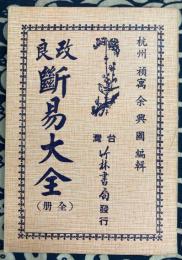 杭州 余興國 編輯
改良
斷易大全
（全册）
台灣
竹林書局發行